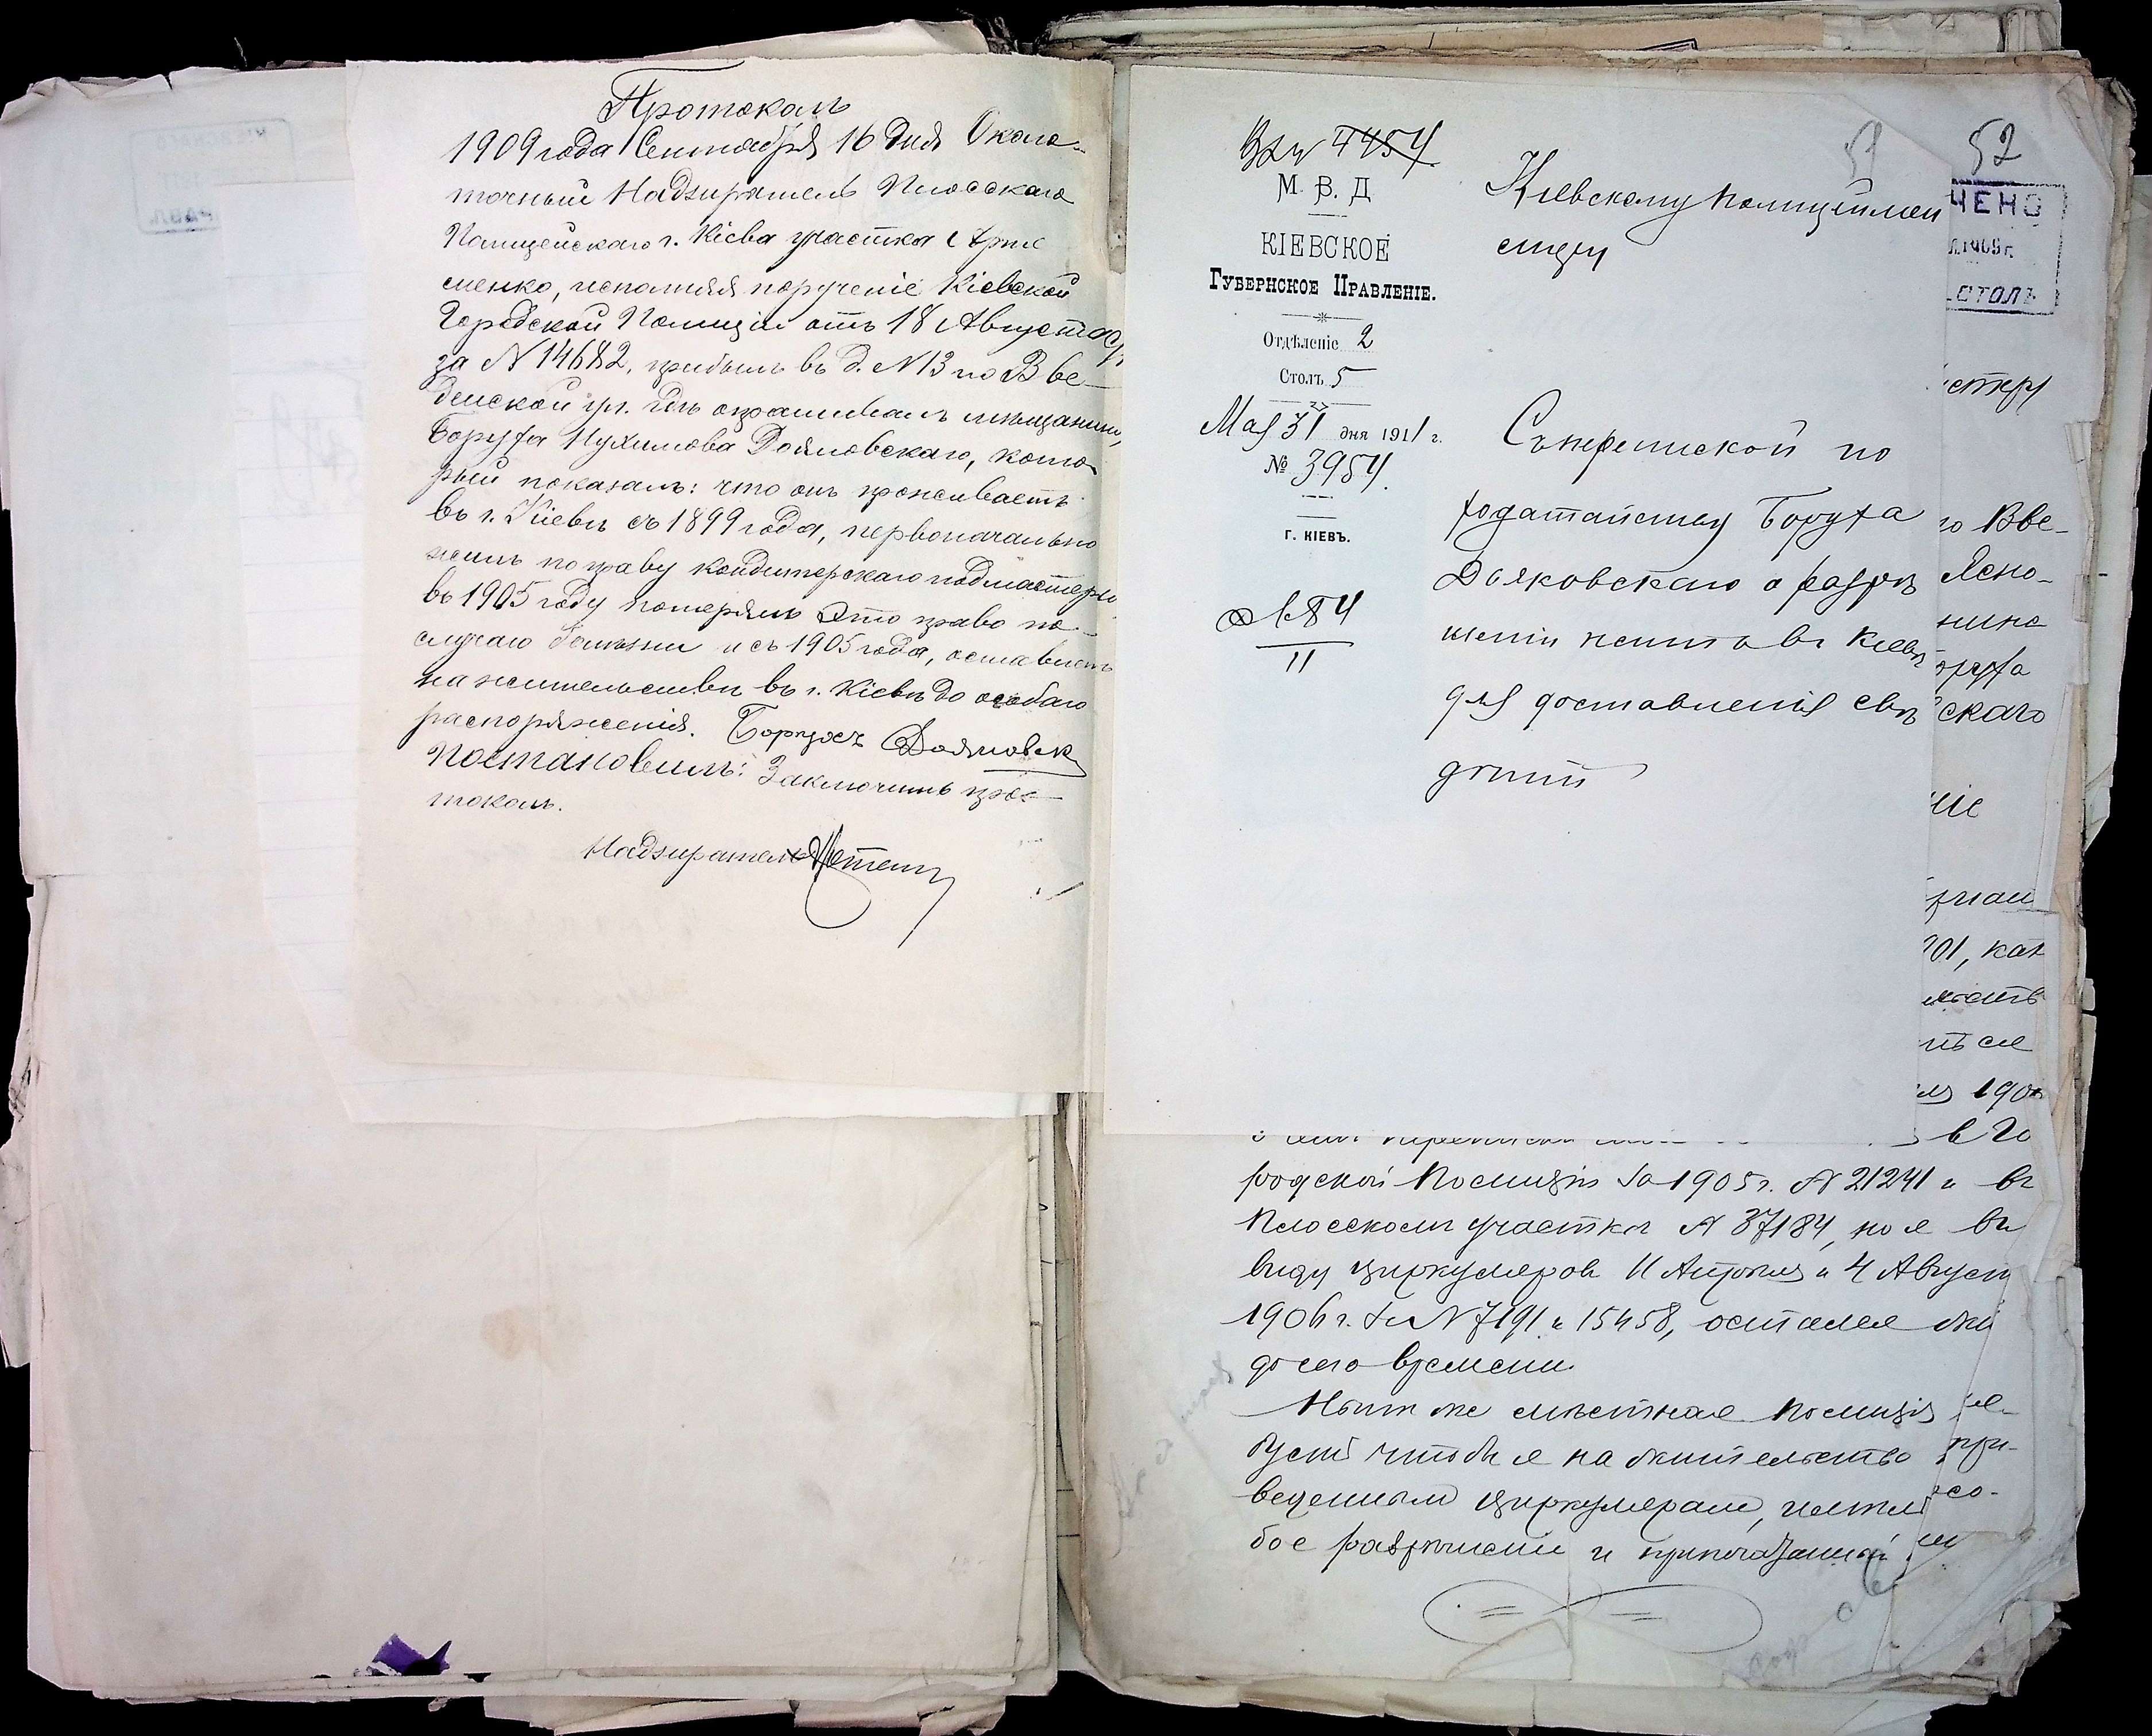 Протоколъ
1909 года Сентября 16 дня Около-
точный Надзиратель Плосскаго
Полицейскаго г. Кіева участка
сменко, исполняя порученіе Кіевской
Городской Полиціи отъ 18 Августа с/г
за N 14682, прибылъ въ д. N 13 по Вве-
денской ул. гдѣ опрашивалъ мѣщанина,
Боруха Нухимова Дояковскаго, кото-
рый показалъ: что онъ проживаетъ
въ г. Кіевѣ съ 1899 года, первоначально
жилъ по праву кондитерскаго подмастерья
въ 1905 году потерялъ это право по
случаю болѣзни и съ 1905 года, оставленъ
на жительствѣ въ г. Кіевѣ до особаго
распоряженія. Борухъ Дояковск
Постановилъ: Заключить про-
токолъ.
Надзиратель
4454
М. В. Д
КІЕВСКОЕ
ГУБЕРНСКОЕ ПРАВЛЕНІЕ.
Отдѣленіе 2
Столъ 5
Мая 31 дня 1911 г.
№ 3954.
Г. КІЕВЪ.
11
Кіевскому Полицеймей
стеру
Съ перепиской по
ходатайству Боруха
Дояковскаго о разрѣ
шеніи жить въ Кіевѣ
для доставленія свѣ
дѣній
51
52
ЧЕНО
1909 г.
СТОЛЪ
стеру
о Вве-
Ясно-
нина
оруха
скаго
ніе
01, как
ься
190
в Го
родской Полиціи за 1905 г. N 21241 и въ
Плосскомъ участкѣ N 37184, но я въ
виду циркуляровъ 11 Апрѣля и 4 Август
1906 г. за N 7191 и 15458, остался жи
до сего времени.
Нынѣ же мѣстная Полиція
буетъ чтобы я на жительство при-
веденнымъ циркулярамъ, имѣлъ осо-
бое разрѣшеніе и